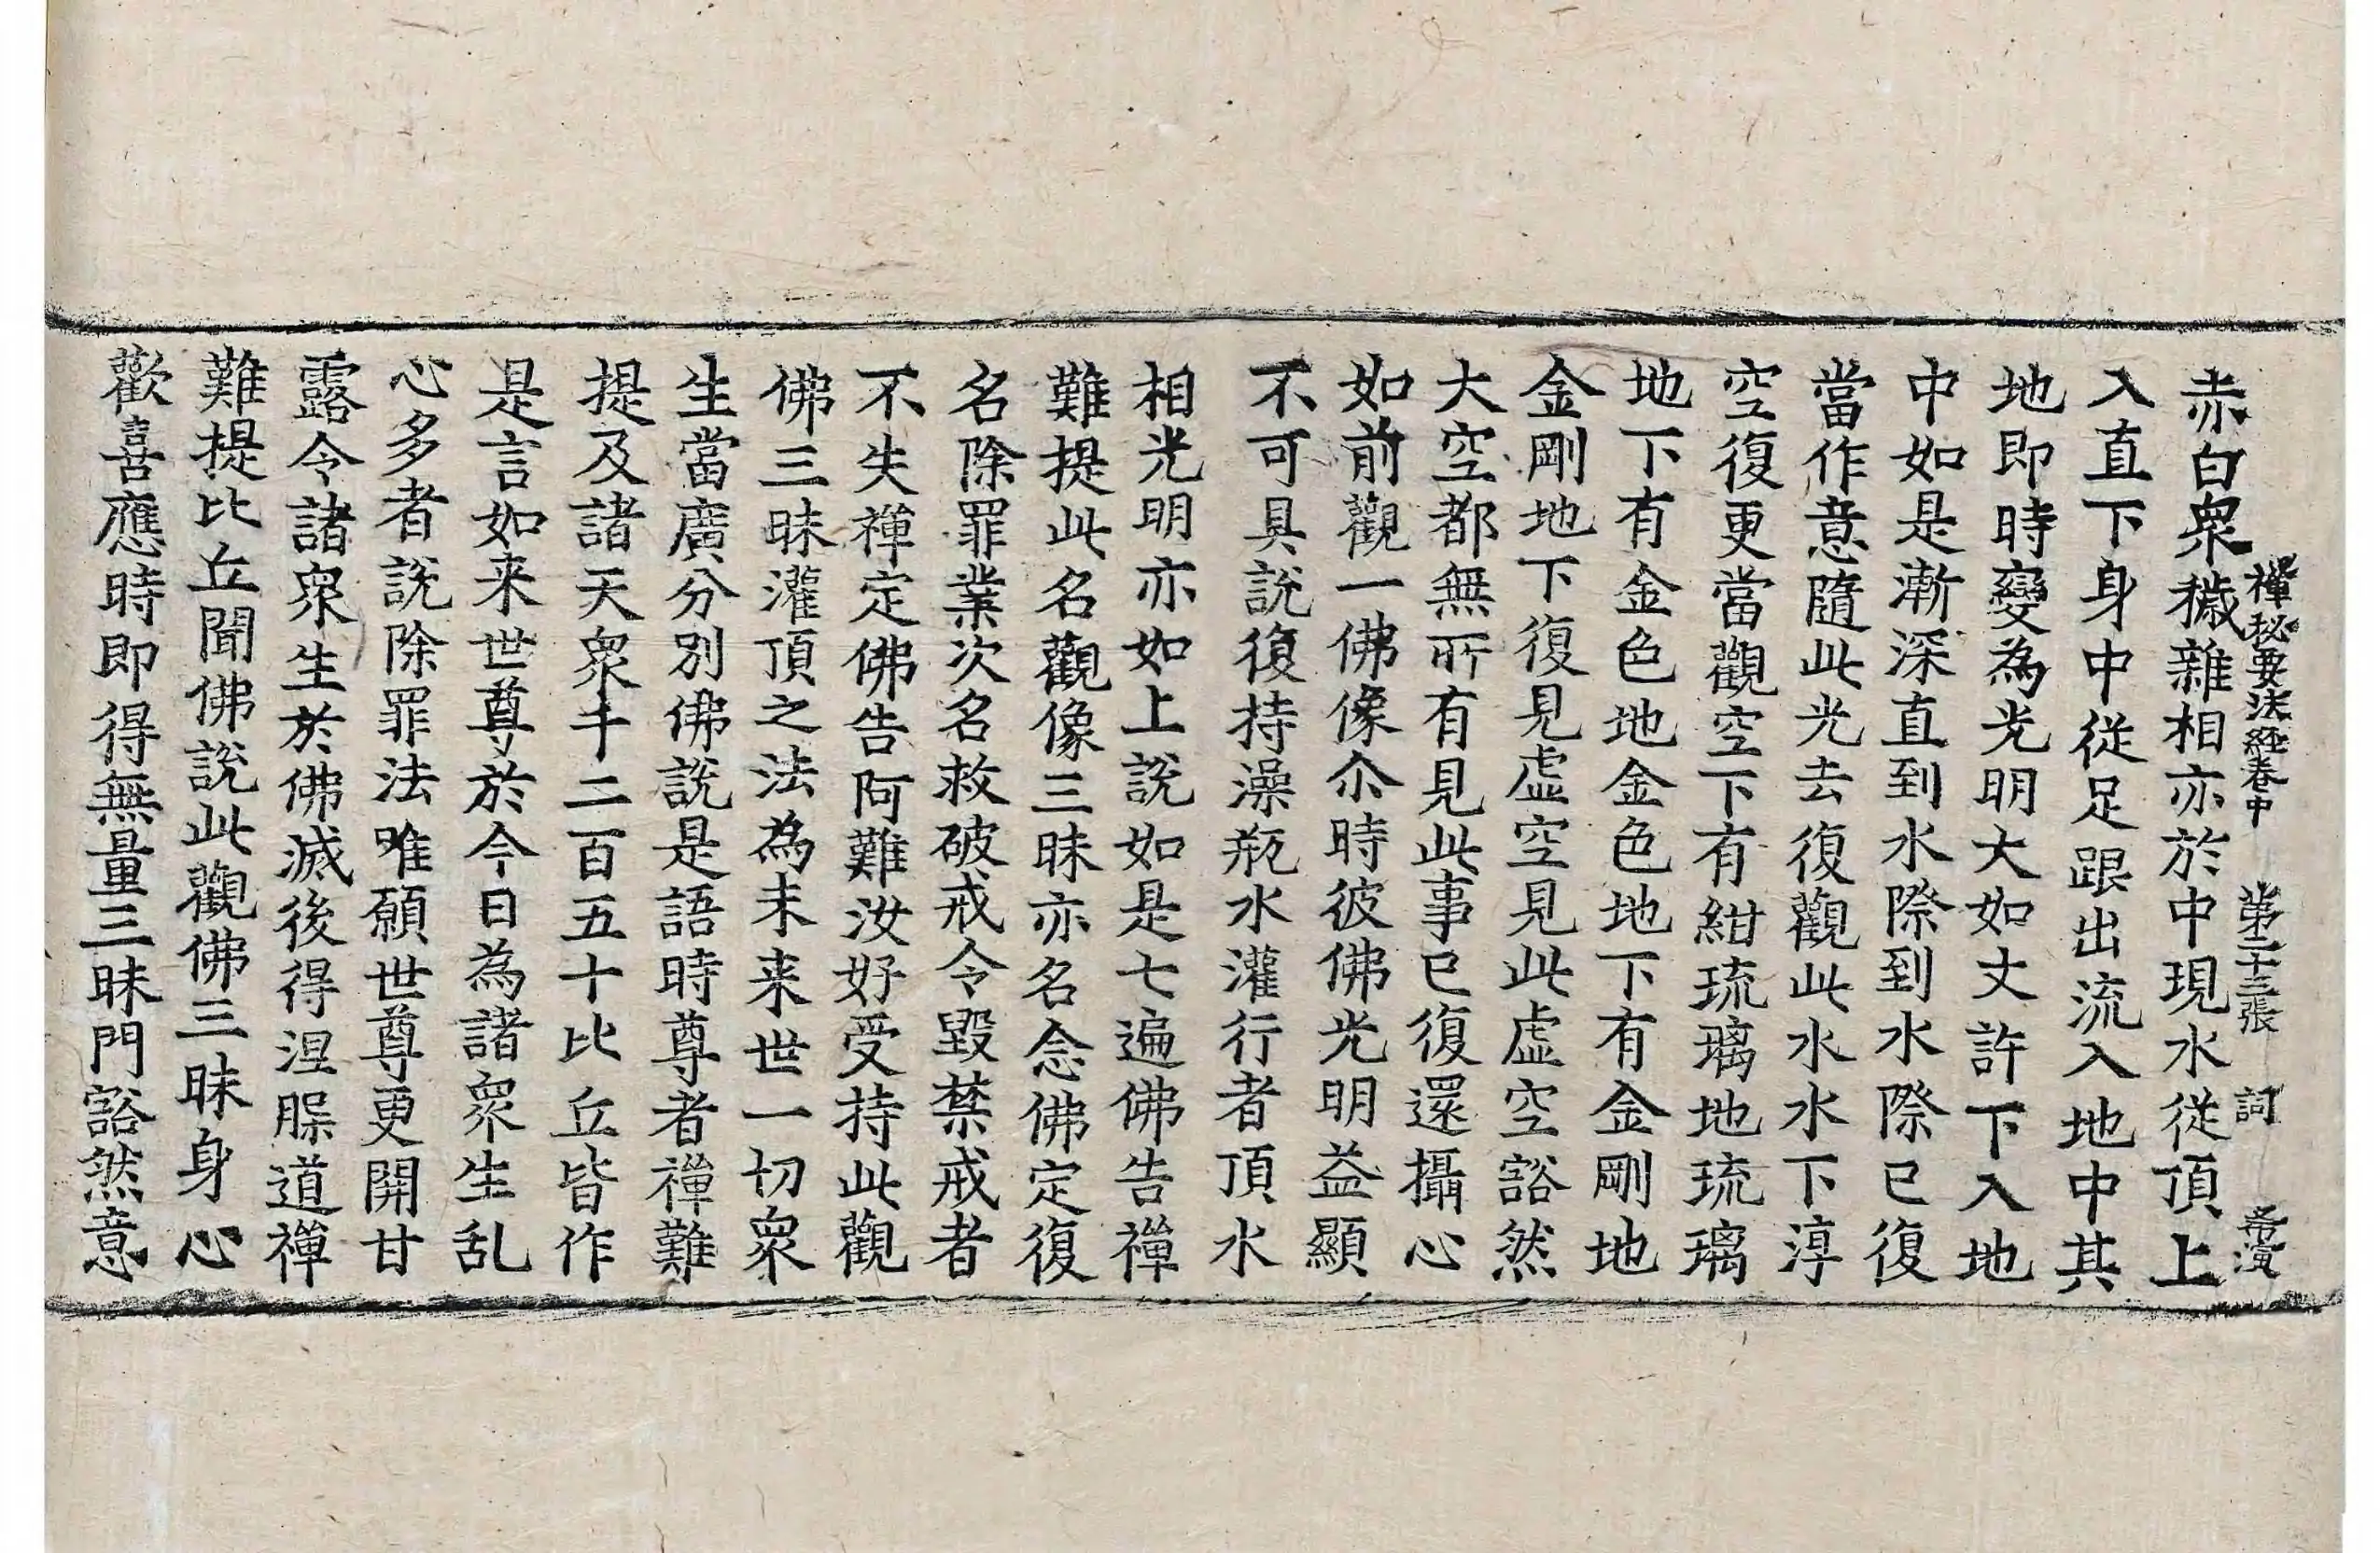 禪秘要法經卷中　第二十三張　詞　
赤白衆穢雜相亦於中現水從頂上
入直下身中從足跟出流入地中其
地即時變為光明大如丈許下入地
中如是漸深直到水際到水際已復
當作意隨此光去復觀此水水下淳
空復更當觀空下有紺琉璃地琉璃
地下有金色地金色地下有金剛地
金剛地下復見虛空見此虛空豁然
大空都無所有見此事已復還攝心
如前觀一佛像尒時彼佛光明益顯
不可具說復持澡瓶水灌行者頂水
相光明亦如上說如是七遍佛告禪
難提此名觀像三昧亦名念佛定復
名除罪業次名救破戒令毀禁戒者
不失禪定佛告阿難汝好受持此觀
佛三昧灌頂之法為未来世一切衆
生當廣分別佛說是語時尊者禪難
提及諸天衆千二百五十比丘皆作
是言如来世尊於今日為諸衆生乱
心多者說除罪法唯願世尊更開甘
露令諸衆生於佛滅後得涅槃道禪
難提比丘聞佛說此觀佛三昧身心
歡喜應時即得無量三昧門豁然意